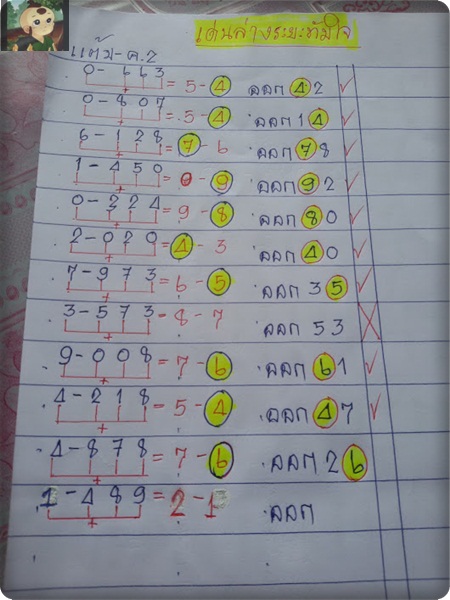 เด่นล่างระยะทำใจ
แต้ม-ค.2
0-663=5-4 ออก 42
0-807=5-4 ออก 14
6-128=7-6 ออก 78
1-450=0-9 ออก 92
0-224=9-8 ออก 80
2-020=4-3 ออก 40
7-973=6-5 ออก 35
3-573=8-7 ออก 53
9-008=7-6 ออก 61
4-218=5-4 ออก 47
4-878=7-6 ออก 26
1-489=2-1 ออก